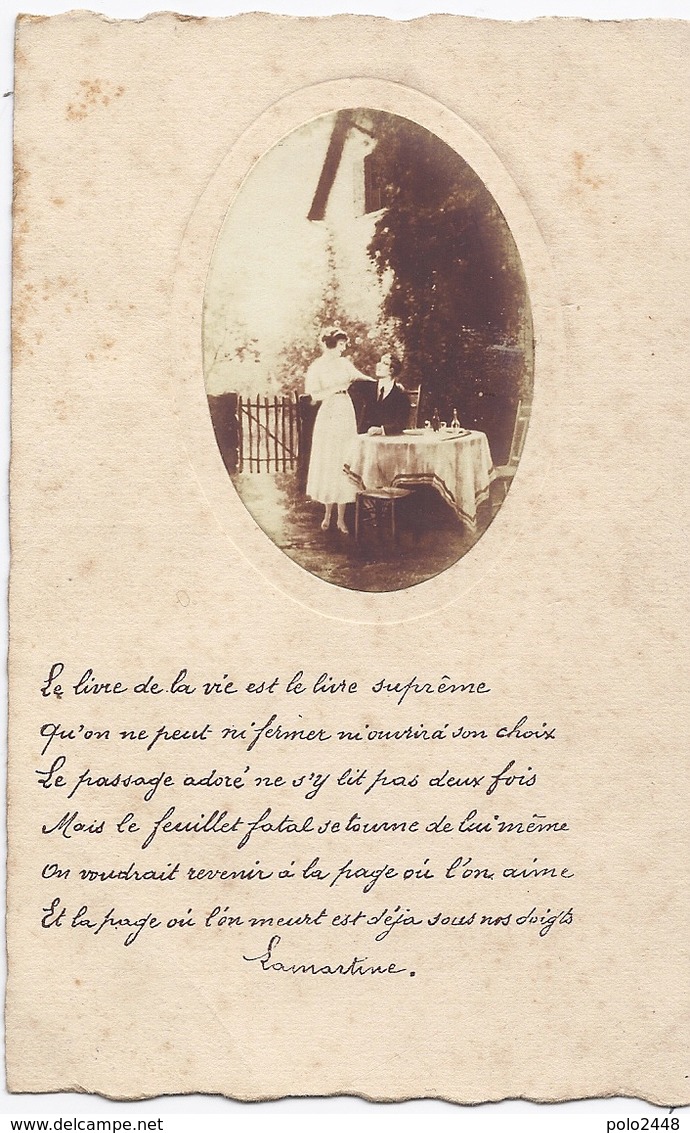 Le livre de la vie est le livre suprême
Qu'on ne peut ni fermer ni ouvrir à son choix
Le passage adoré ne s'y lit pas deux fois
Mais le feuillet fatal se tourne de lui même
On voudrait revenir à la page où l'on aime
Et la page où l'on meurt est déja sous nos doigts
Lamartine.
www.delcampe.net
polo2448